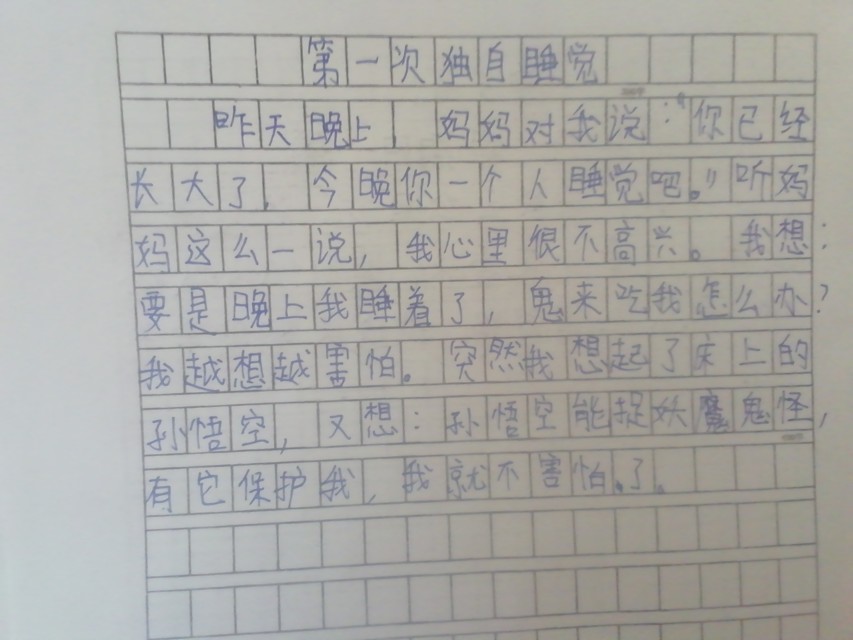 第一次独自睡觉
昨天晚上，妈妈对我说：“你已经
长大了，今晚你一个人睡觉吧。”听妈
妈这么一说，我心里很不高兴。我想：
要是晚上我睡着了，鬼来吃我怎么办？
我越想越害怕。突然我想起了床上的
孙悟空，又想：孙悟空能捉妖魔鬼怪，
有它保护我，我就不害怕.了。